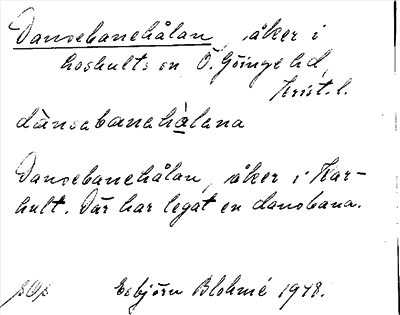 Dansebanehålan, åker i
Loshults sn Ö. Göinge hd,
Krist. l.
dànsabanehàlana
Dansebanehålan, åker i Kar-
hult. Där har legat en dansbana.
Esbjörn Blohmé 1978.